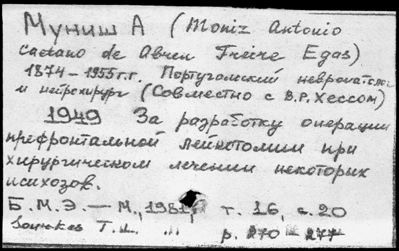 Муниш А (Moniz Antonio
Caetano de Abreu Freire Egas)
1874-1955 г.г. Португальский невропатолог
и нейрохирург (Совместно с В.Р. Хессом)
1949 За разработку операции
префронтальной лейкотомии при
хирургическом лечении некоторых
психозов.
Б.М.Э. — М., 1981, т. 16, с. 20
T.L. " p. 270 - 277